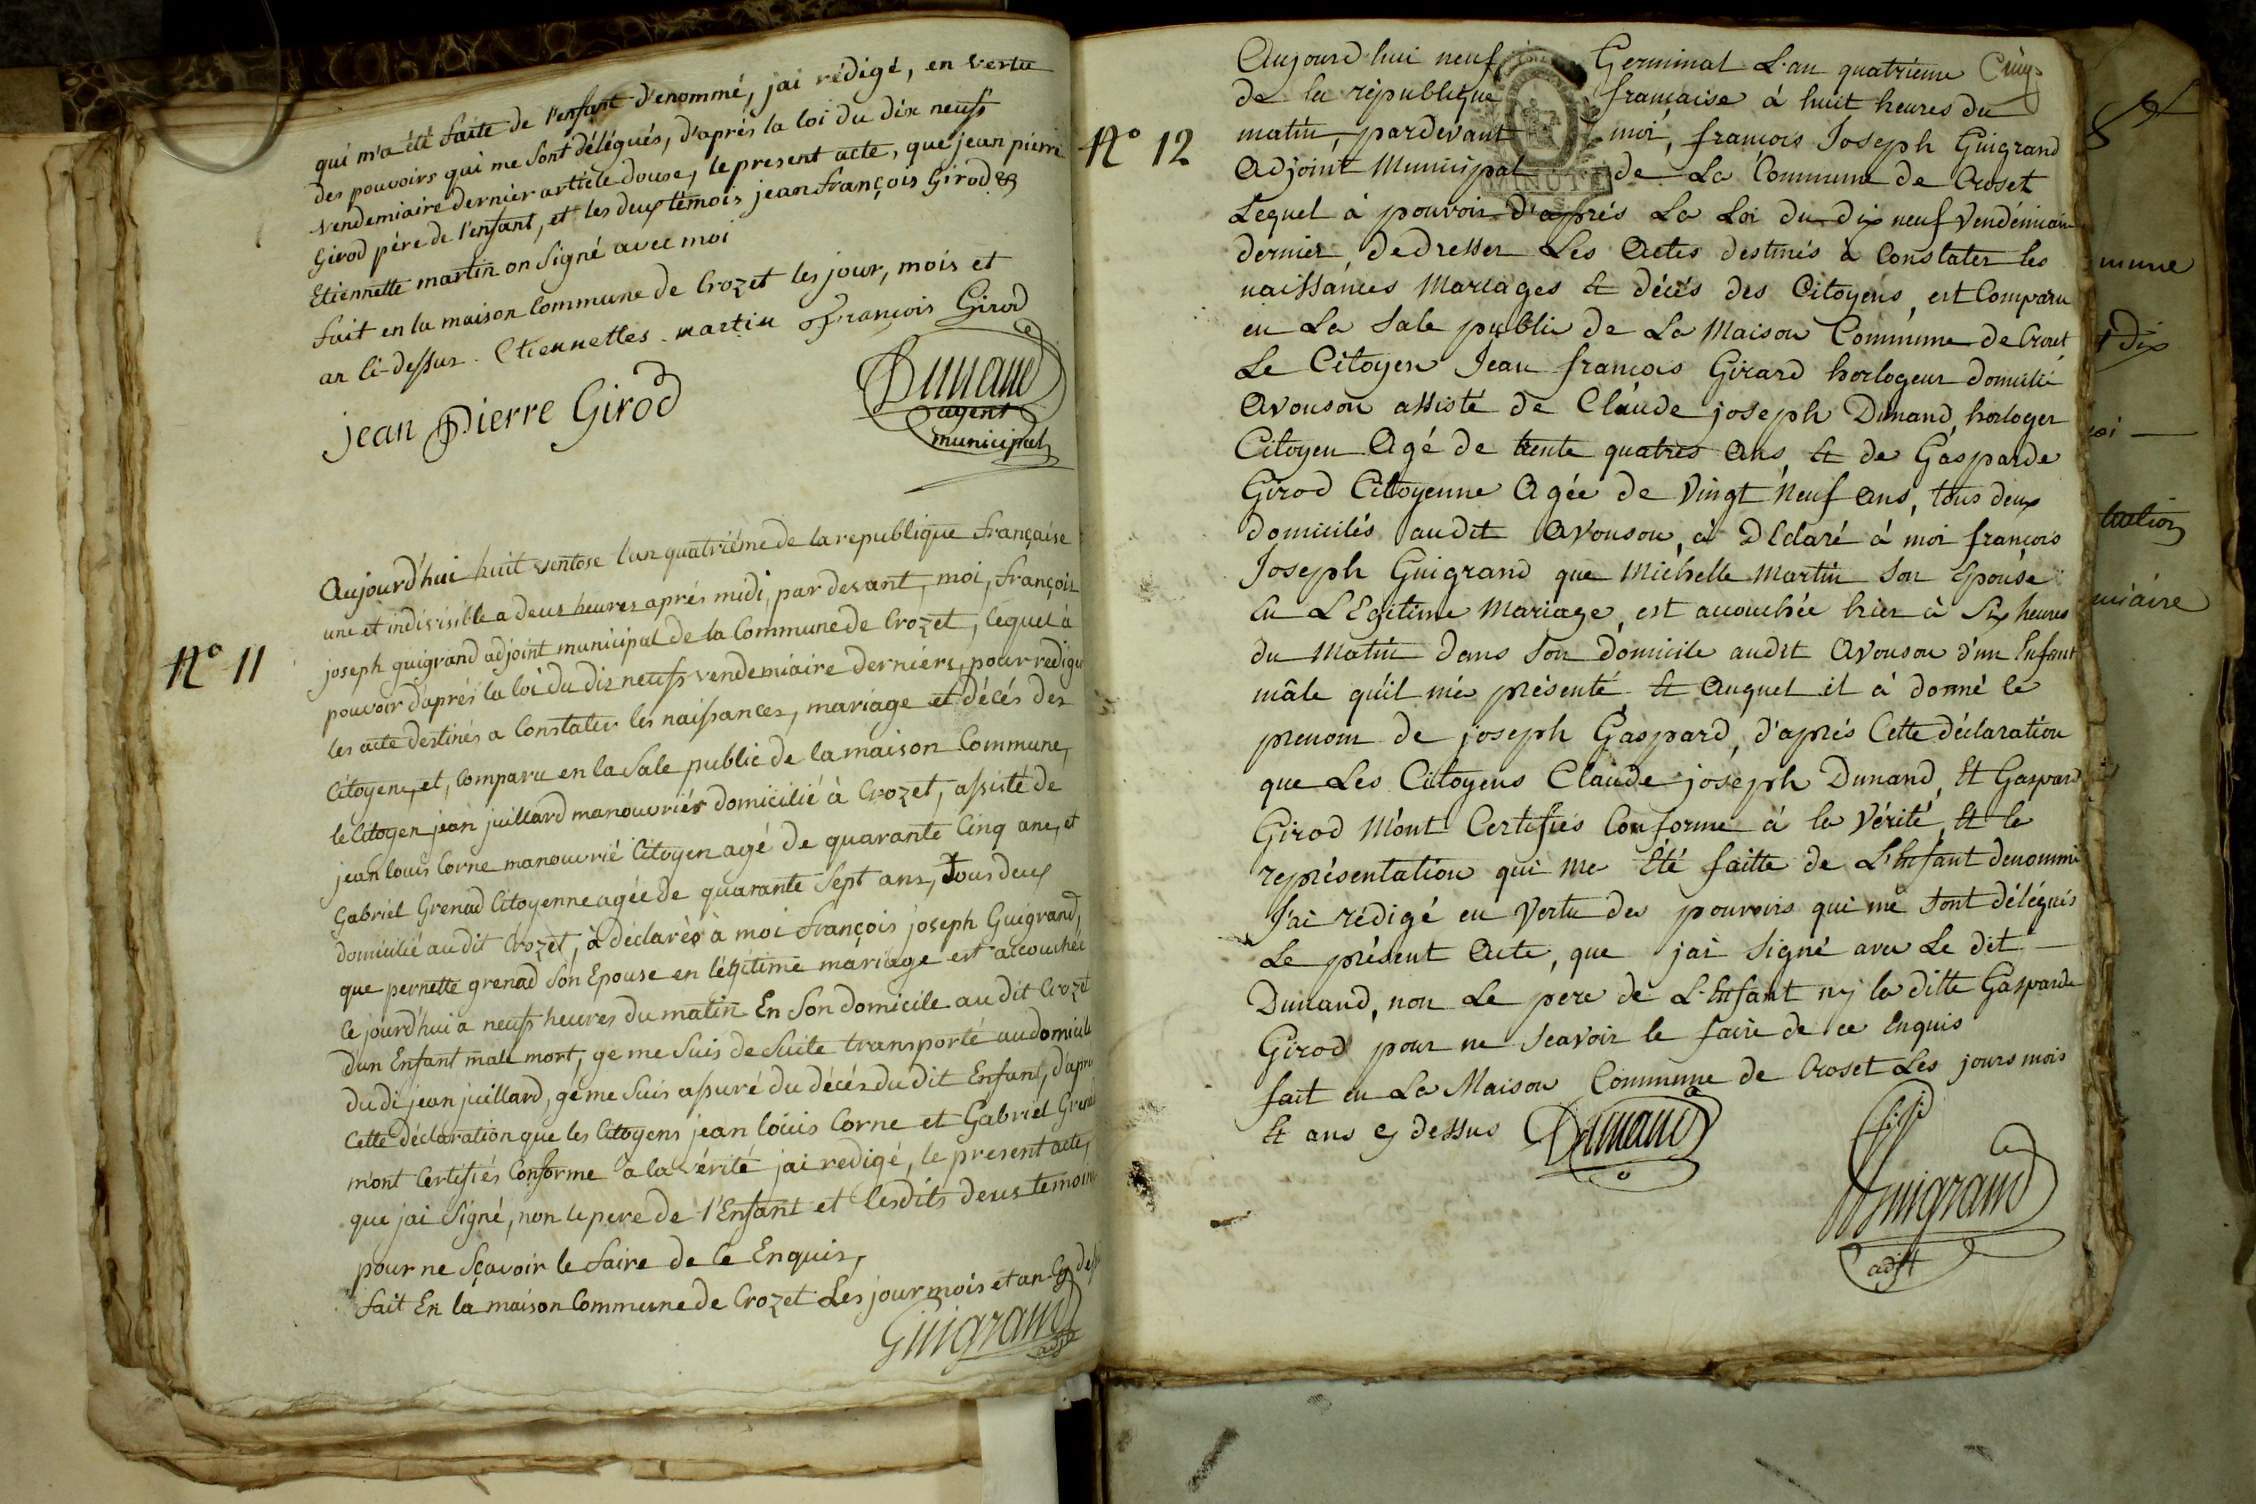 qui m'a été faite de l'enfant d'enommé, jai rédigé, en vertu
des pouvoirs qui me sont délégués, d'aprés la loi du dix neufs
vendemiaire dernier article douse, le present acte, que jean pierre
Girod pére de l'enfant, et les deux témois jean françois Girod &
Etiennette martin on signé avec moi
fait en la maison Commune de Crozet les jour, mois et
an ci-dessus. Etiennettes. martin françois Girod
jean Pierre Girod
Dunand
agent
municipal
N° 11
Aujourd'hui huit ventose l'an quatriéme de la republique française
une et indivisible a deux heures aprés midi, par devant, moi, françois
joseph guigrand adjoint municipal de la Commune de Crozet, lequel à
pouvoir d'aprés la loi du dix neufs vendemiaire derniérs, pour rediger
les acte destinés a Constater les naissances, mariage et décés des
Citoyens, et, Comparu en la Sale public de la maison Commune,
le Citogen jean juillard manouvriér domicilié à Crozet, assisté de
jean louis Corne manouvrié Citoyen agé de quarante Cinq ans, et
Gabriel Grenad Citoyenne agée de quarante Sept ans, Tous deux
domicilié audit Crozet, à déclarès à moi françois joseph Guigrand,
que pernette grenad son Epouse en légitime mariage est accouchée
Ce jourd'hui a neufs heures du matin En Son domicile au dit Crozet
dun Enfant male mort, ge me Suis de Suite transporté au domicile
du di jean juillard, ge me Suis assuré du décés du dit Enfant, d'apre
Cette déclaration que les Citogens jean loiuis Corne et Gabriel Grenad
m'ont Certifiés Conforme a la vérité jai redigé, le present acte,
que jai signé, non le pere de l'Enfant et lesdits deux temoins
pour ne Sçavoir le faire de Ce Enquis,
fait En la maison Commune de Crozet Les jour mois et an Cy dess
Guigrand
adjt
N° 12
Aujourd'hui neuf Germinal L'an quatrieme
de la république française à huit heures du
matin, pardevant moi, francois Joseph Guigrand
Adjoint Municipal de La Commune de Croset
MINUTE
Lequel à pouvoir d'aprés La Loi du dix neuf Vendémiaire
dernier, dedresser Les Actes destinés à Constater les
naissances Mariages & décés des Citoyens, est Comparu
en La Sale public de La Maison Commune de Croset
Le Citoyen Jean francois Girard horlogeur domicilié
Avouson assisté de Claude joseph Dunand, horloger
Citoyen Agé de trente quatres Ans, & de Gasparde
Girod Citoyenne Agée de Vingt Neuf ans, tous deux
domicilés audit Avouson, à Déclaré à moi francois
Joseph Guigrand que Michelle Martin Son Epouse
en LEgitime Mariage, est accouchée hier à Six heures
du Matin dans Son domicile audit Avouson d'un Enfant
mâle qu'il m'a présenté & Auquel il à donné le
prenom de joseph Gaspard, d'aprés Cette déclaration
que Les Citoyens Claude joseph Dunand, & Gaspard
Girod M'ont Certifies Conforme à la Vérité, & le
représentation qui me Eté faitte de L'Enfant denommé
J'ai rédigé en Vertu des pouvoirs qui me sont délégués
Le présent Acte, que jai signé avec Le dit
Dunand, non Le pere de L'Enfant ny la ditte Gasparde
Girod pour ne Scavoir le faire de ce Enquis
fait en La Maison Commune de Croset Les jours mois
& ans cy dessus Dunand
Guigrand
adjt
mune
t dix
loi
tution
miaire